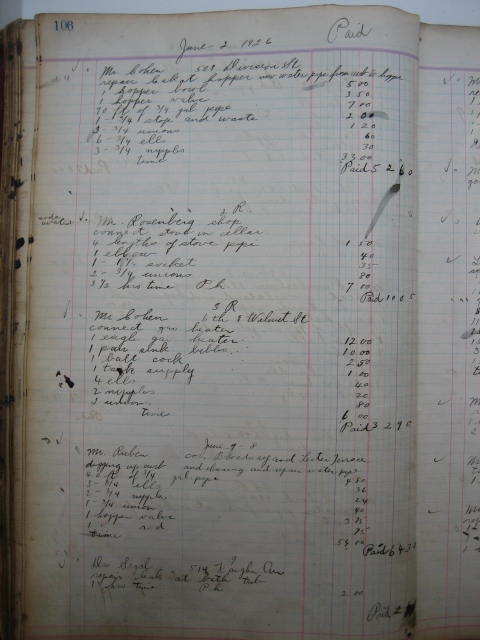 106
June 2 1926
Paid
Mr Cohen 509 Division St
repair leak at hopper new water pipe from curb to hopper
1 hopper bowl 5 00
1 hopper valve 3 50
70 ft of 3/4 gal pipe 7 00
1 - 3/4 stop and waste 2 00
3 - 3/4 unions 1 20
6 - 3/4 ells 60
3 - 3/4 nipples 30
time 33 00
Paid 52 60
3 R.
Mr. Rosenberg shop
connect stove in cellar
4 lengths of stove pipe 1 50
1 elbow 40
1 - socket 35
2 - 3/4 unions 80
3 1/2 hrs time P.h 7 00
Paid 10 05
3 R
Mr Cohen 6th & Walnut St
connect gas heater
1 eagle gas heater 12 00
1 pair sink bibbs 10 00
1 ball cock 2 50
1 tank supply 1 00
4 ells 40
2 nipples 20
2 unions 80
time 6 00
Paid 32 90
June 9 - 8
Mr. Ruben cor. Broadway and Lester Terrace
digging up curb and cleaning and repair water pipe
ft of 3/4 gal pipe 4 80
3 - 3/4 ells 36
2 - 3/4 nipples 24
1 - 3/4 union 40
1 hopper valve 3 75
1 rod 75
time 54 00
Paid 64 3
9
Dr. Segal 514 Kaighn Ave
repair leak at bath tub
1 hrs time P.h 2 00
Paid 2